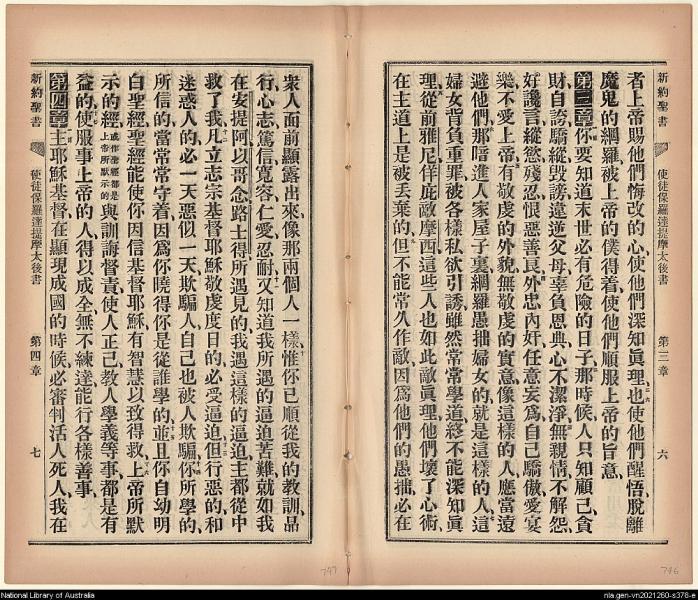 新約聖書 使徒保羅達提摩太後書 第三章 六
者上帝賜他們悔改的心使他們深知眞理也使他們醒悟脫離
魔鬼的網羅被上帝的僕得着使他們順服上帝的旨意
第三章你要知道末世必有危險的日子那時候人只知顧己貪
財自誇驕縱毀謗違逆父母辜負恩典心不潔淨無親情不解怨
好讒言縱慾殘忍恨惡善良外忠內奸任意妄爲自己驕傲愛宴
樂不愛上帝有敬虔的外貌無敬虔的實意像這樣的人應當遠
避他們那暗進人家屋子裏網羅愚拙婦女的就是這樣的人這
婦女背負重罪被各樣私欲引誘雖然常常學道終不能深知眞
理從前雅尼佯庇敵摩西這些人也如此敵眞理他們壞了心術
在主道上是被丢棄的但不能常久作敵因爲他們的愚拙必在
衆人面前顯露出來像那兩個人一樣惟你已順從我的教訓品
行心志篤信寬容仁愛忍耐又知道我所遇的逼迫苦難就如我
在安提阿以哥念路士得所遇見的我遇這樣的逼迫主都從中
救了我凡立志宗基督耶穌敬虔度日的必受逼迫但行惡的和
迷惑人的必一天惡似一天欺騙人自己也被人欺騙你所學的
所信的當常常守着因爲你曉得你是從誰學的並且你自幼明
白聖經聖經能使你因信基督耶穌有智慧以致得救上帝所默
示的經或作聖經都是上帝所默示的與訓誨督責使人正己教人學義等事都是有
益的使服事上帝的人得以成全無不練達能行各樣善事
第四章主耶穌基督在顯現成國的時候必審判活人死人我在
新約聖書 使徒保羅達提摩太後書 第四章 七
747
746
National Library of Australia
nla.gen-vn2021260-s378-e